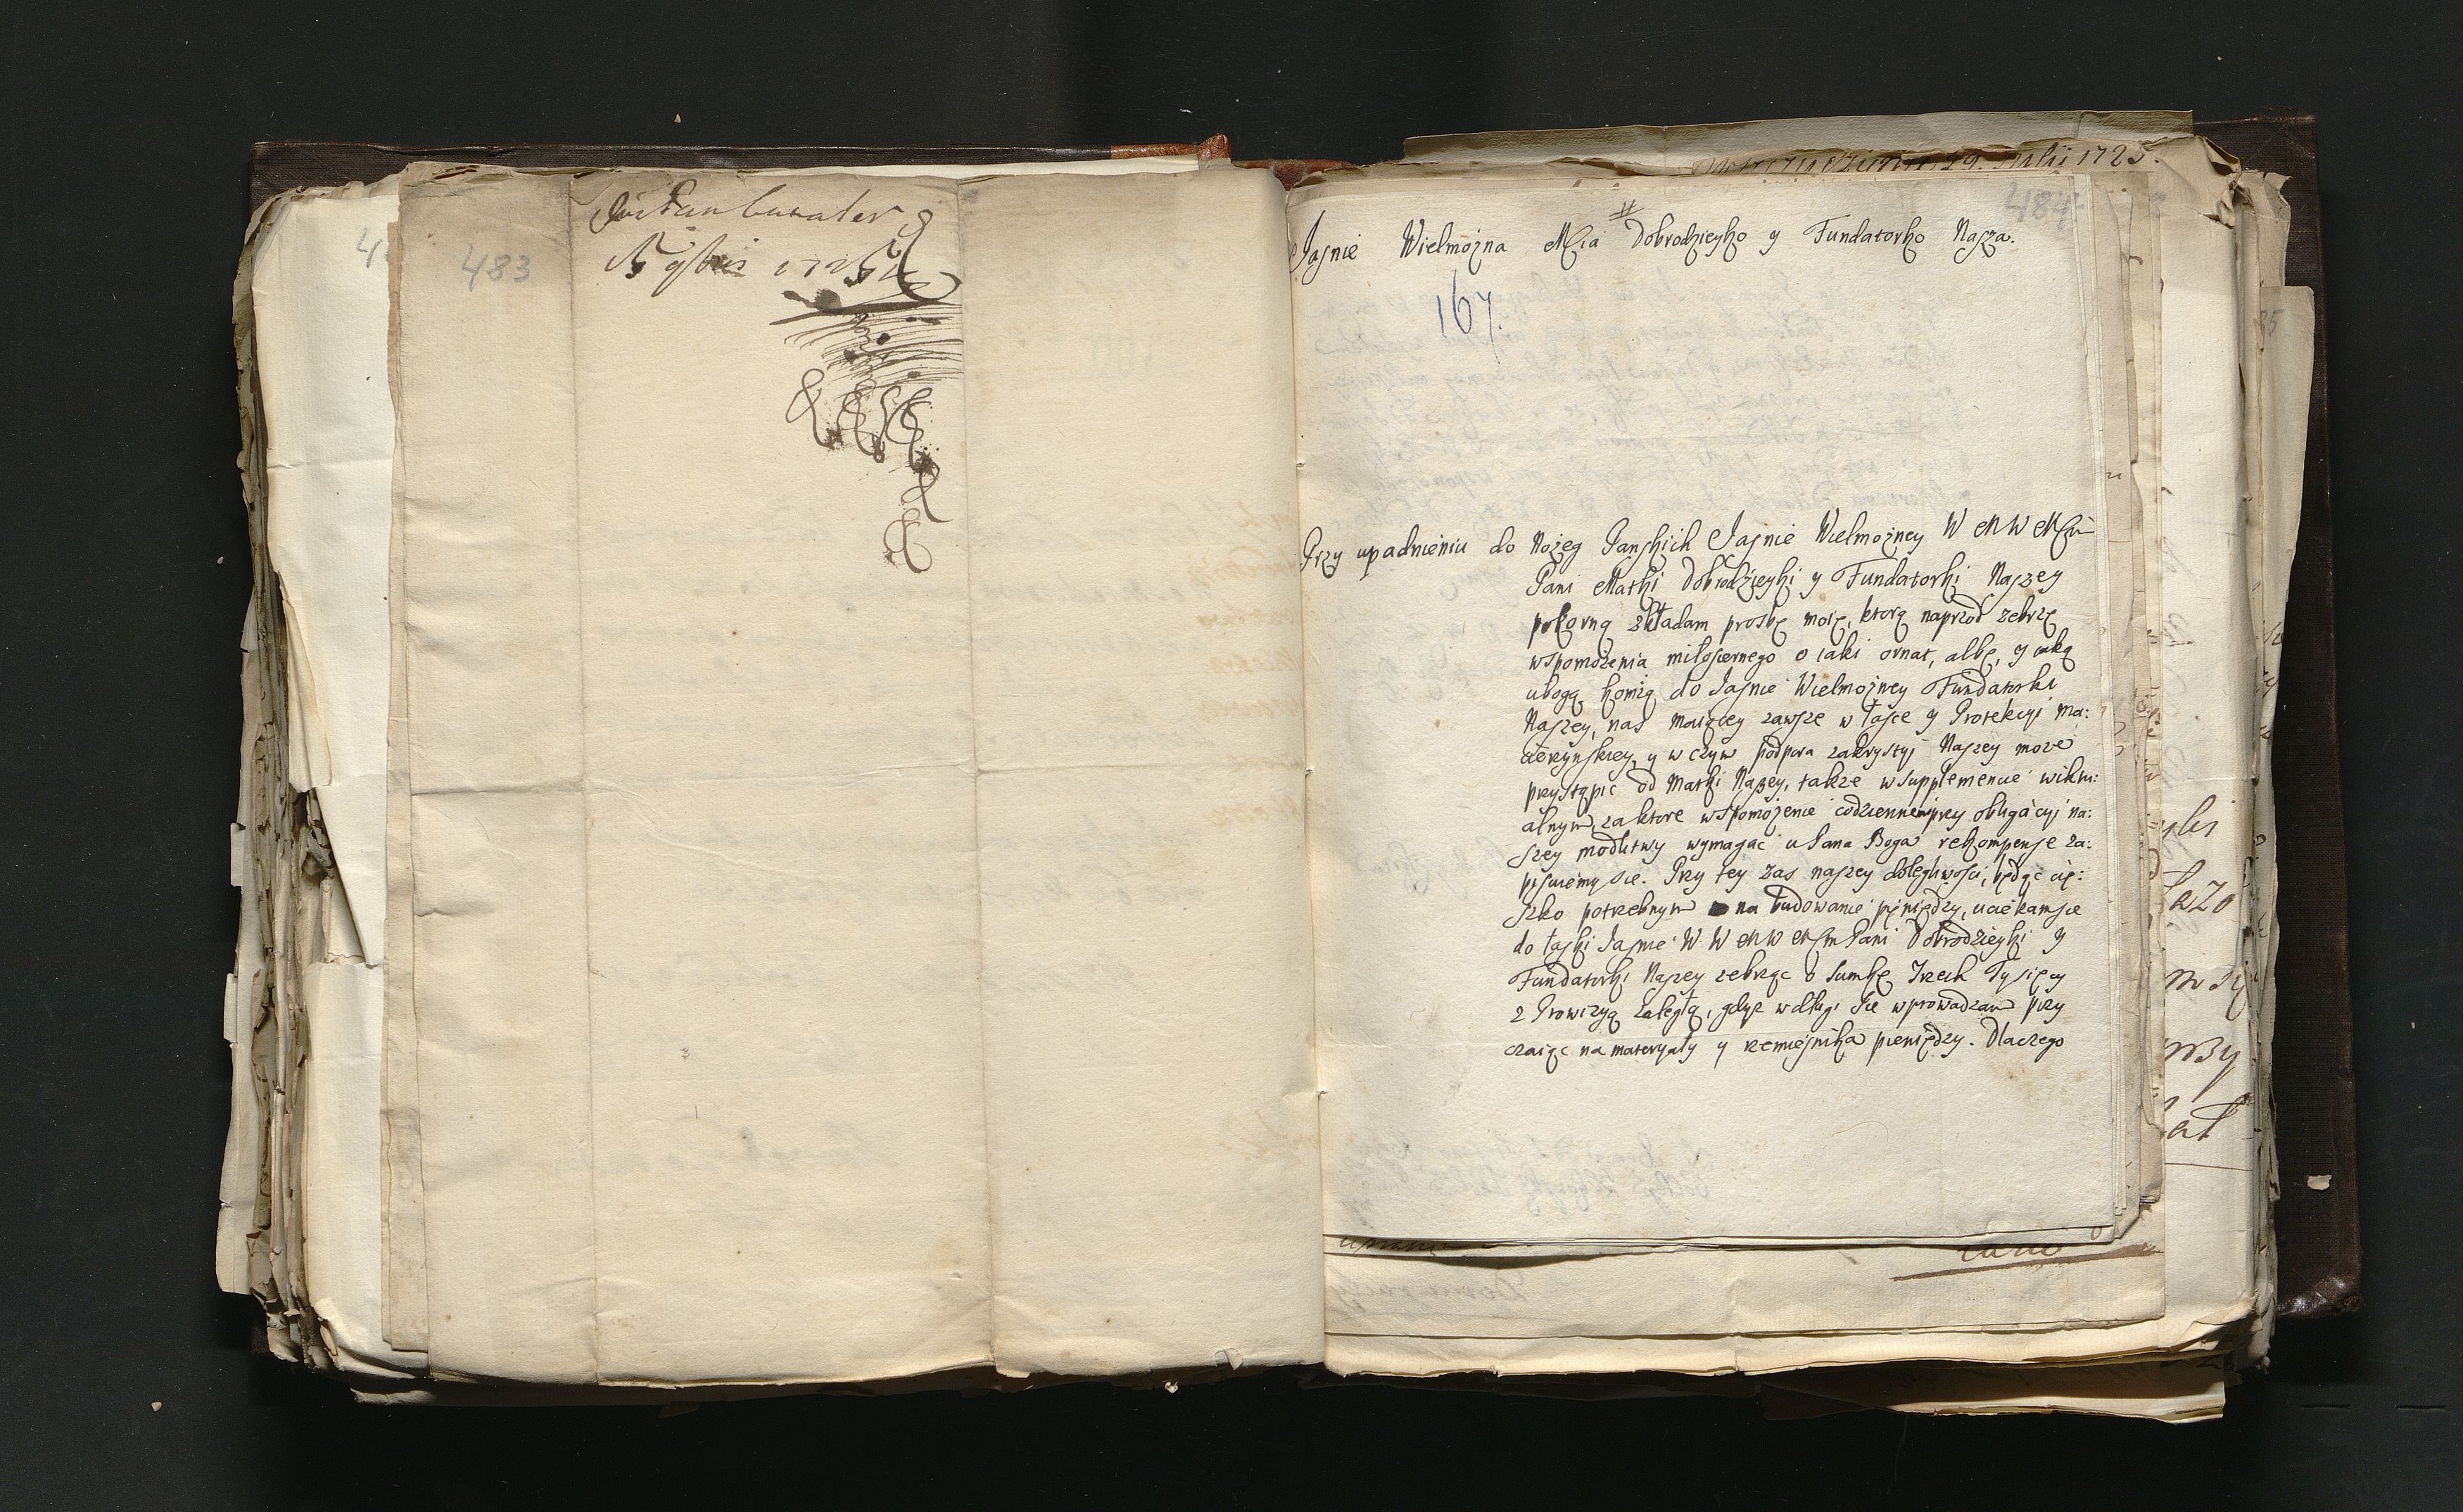 483
1725
Julii 1725.
484
Jasnie Wielmożna Mcia Dobrodzieyko y Fundatorko Nasza.
167.
Przy upadnieniu do Nozeg Panskich Jasnie Wielmozney W M W Mci
Pani Matki Dobrodzieyki y Fundatorki Naszey
pokorną składam prosbę moię, ktorą naprzod żebrzę
wspomożenia miłosiernego o iaki ornat, albę, y iaką
ubogą komżą do Jasnie Wielmozney Fundatorki
Naszey, nas maiącey zawsze w łasce y Protekcyi ma:
cierzynskiey, y w czym podpora zakrystyi Naszey moze
przystąpic od Matki Naszey, takze w supplemencie wiktu:
alnym, za ktore wspomożenie codziennemi przy obligacyi na:
szey modlitwy wymagać u Pana Boga rekompense za:
pisuiemy sie. Przy tey zas naszey dolegliwosci, będąc cię:
szko potrzebnym na budowanie pięniędzy, uciekam sie
do łaski Jasnie W. W M W Mcm Pani Dobrodzieyki y
Fundatorki Naszey żebrząc o Summę Trzech Tysięcy
z Prowizyą zaległą, gdyż w długi sie wprowadzam przy
czaiąc na materyały y rzemiesnika pieniędzy. Dlaczego